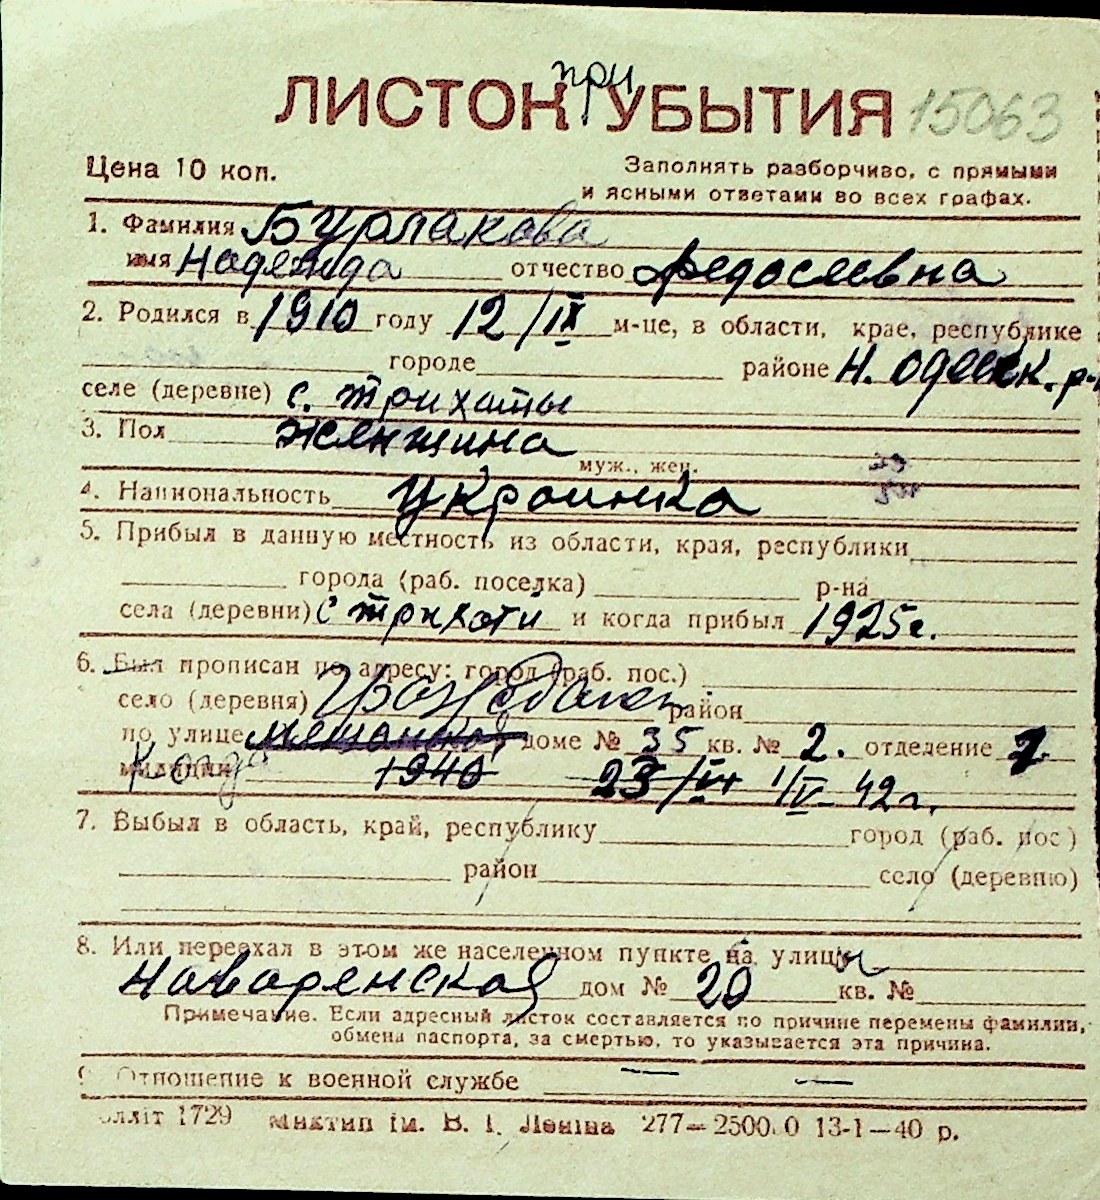 при
ЛИСТОК УБЫТИЯ 15063
Цена 10 коп. Заполнять разборчиво, с прямыми
и ясными ответами во всех графах.
1. Фамилия Бурлакова
имя Надежда отчество Федосеевна
2. Родился в 1910 году 12/IX м-це, в области, крае, республике
городе районе Н. Одесск. р-н
селе (деревне) с. Трихаты
3. Пол Женщина
муж., жен.
4. Национальность Украинка
5. Прибыл в данную местность из области, края, республики
города (раб. поселка) р-на
села (деревни) с Трихати и когда прибыл 1925г.
6. Был прописан по адресу: город (раб. пос.)
село (деревня) район
по улице Мешанской доме № 35 кв. № 2. отделение 2
милиции Когда 1940 23/VI 1/IV-42г.
7. Выбыл в область, край, республику город (раб. пос.)
район село (деревню)
8. Или переехал в этом же населенном пункте на улицы
Наваренская дом № 20 кв. №
Примечание. Если адресный листок составляется по причине перемены фамилии,
обмена паспорта, за смертью, то указывается эта причина.
9. Отношение к военной службе — —
олліт 1729 Миктип ім. В. І. Леніна 277—2500.0 13-1—40 р.